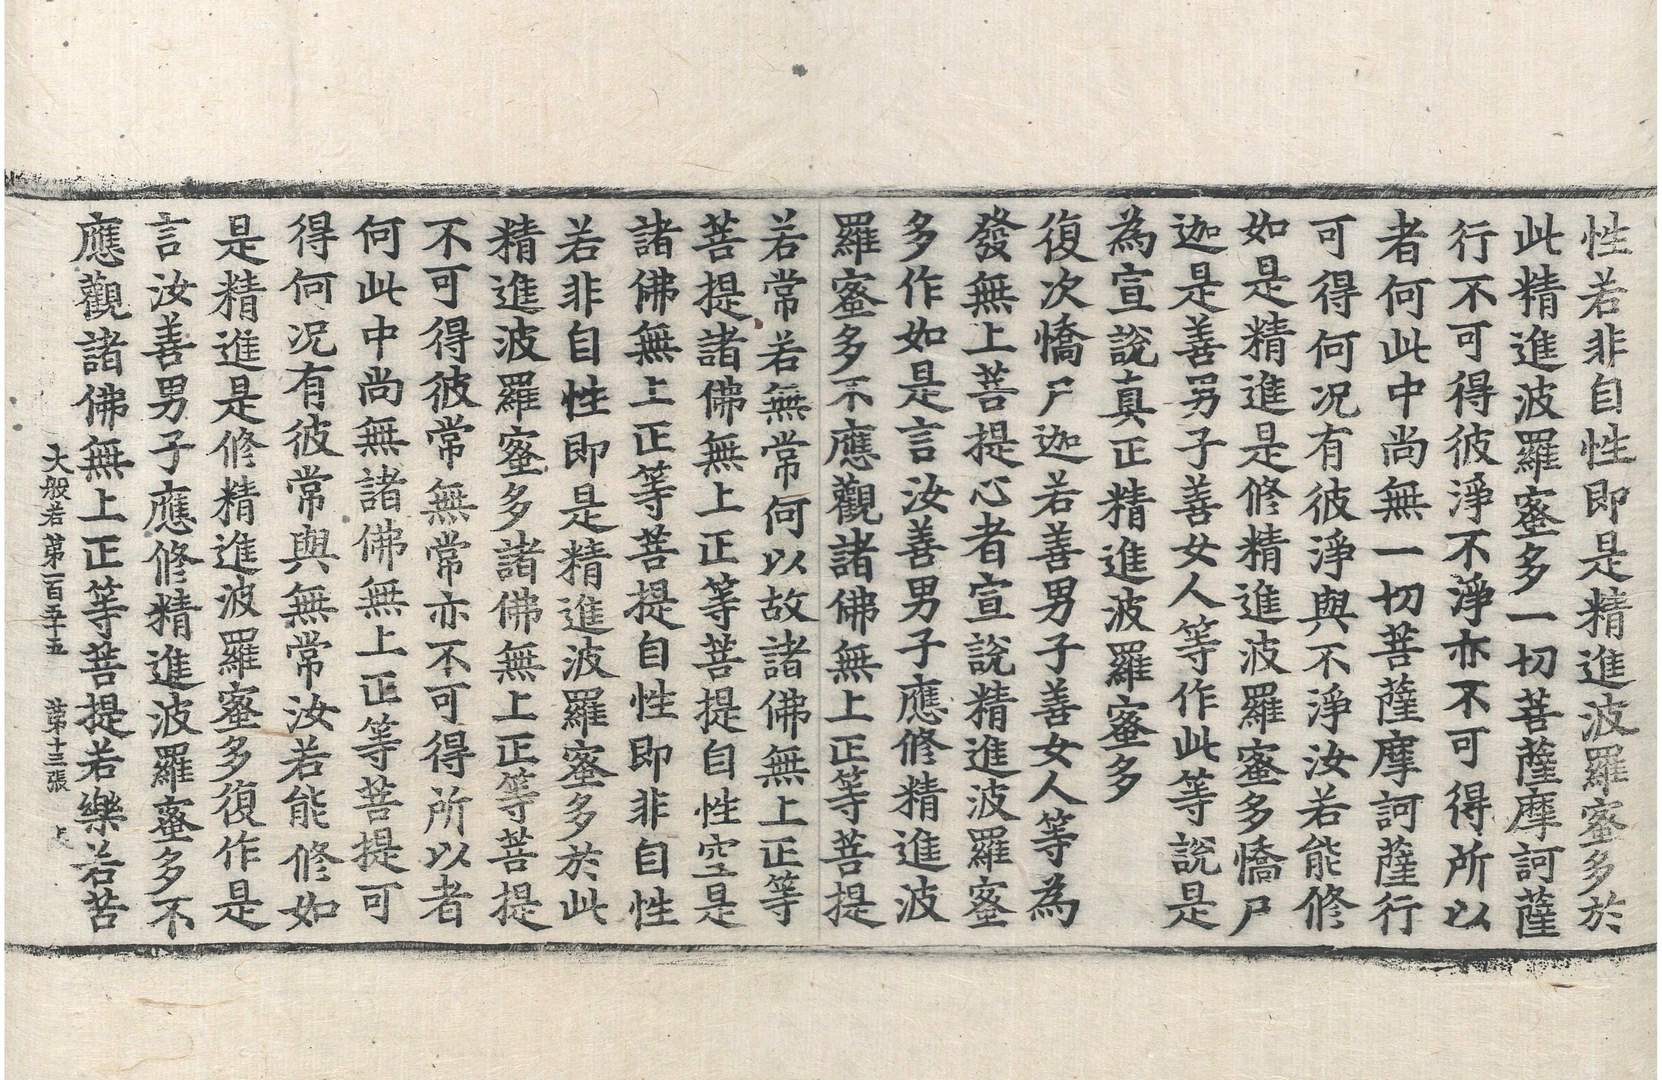 性若非自性即是精進波羅蜜多於
此精進波羅蜜多一切菩薩摩訶薩
行不可得彼淨不淨亦不可得所以
者何此中尚無一切菩薩摩訶薩行
可得何况有彼淨與不淨汝若能修
如是精進是修精進波羅蜜多憍尸
迦是善男子善女人等作此等說是
為宣說真正精進波羅蜜多
復次憍尸迦若善男子善女人等為
發無上菩提心者宣說精進波羅蜜
多作如是言汝善男子應修精進波
羅蜜多不應觀諸佛無上正等菩提
若常若無常何以故諸佛無上正等
菩提諸佛無上正等菩提自性空是
諸佛無上正等菩提自性即非自性
若非自性即是精進波羅蜜多於此
精進波羅蜜多諸佛無上正等菩提
不可得彼常無常亦不可得所以者
何此中尚無諸佛無上正等菩提可
得何况有彼常與無常汝若能修如
是精進是修精進波羅蜜多復作是
言汝善男子應修精進波羅蜜多不
應觀諸佛無上正等菩提若樂若苦
大般若第一百五十五 第十三張